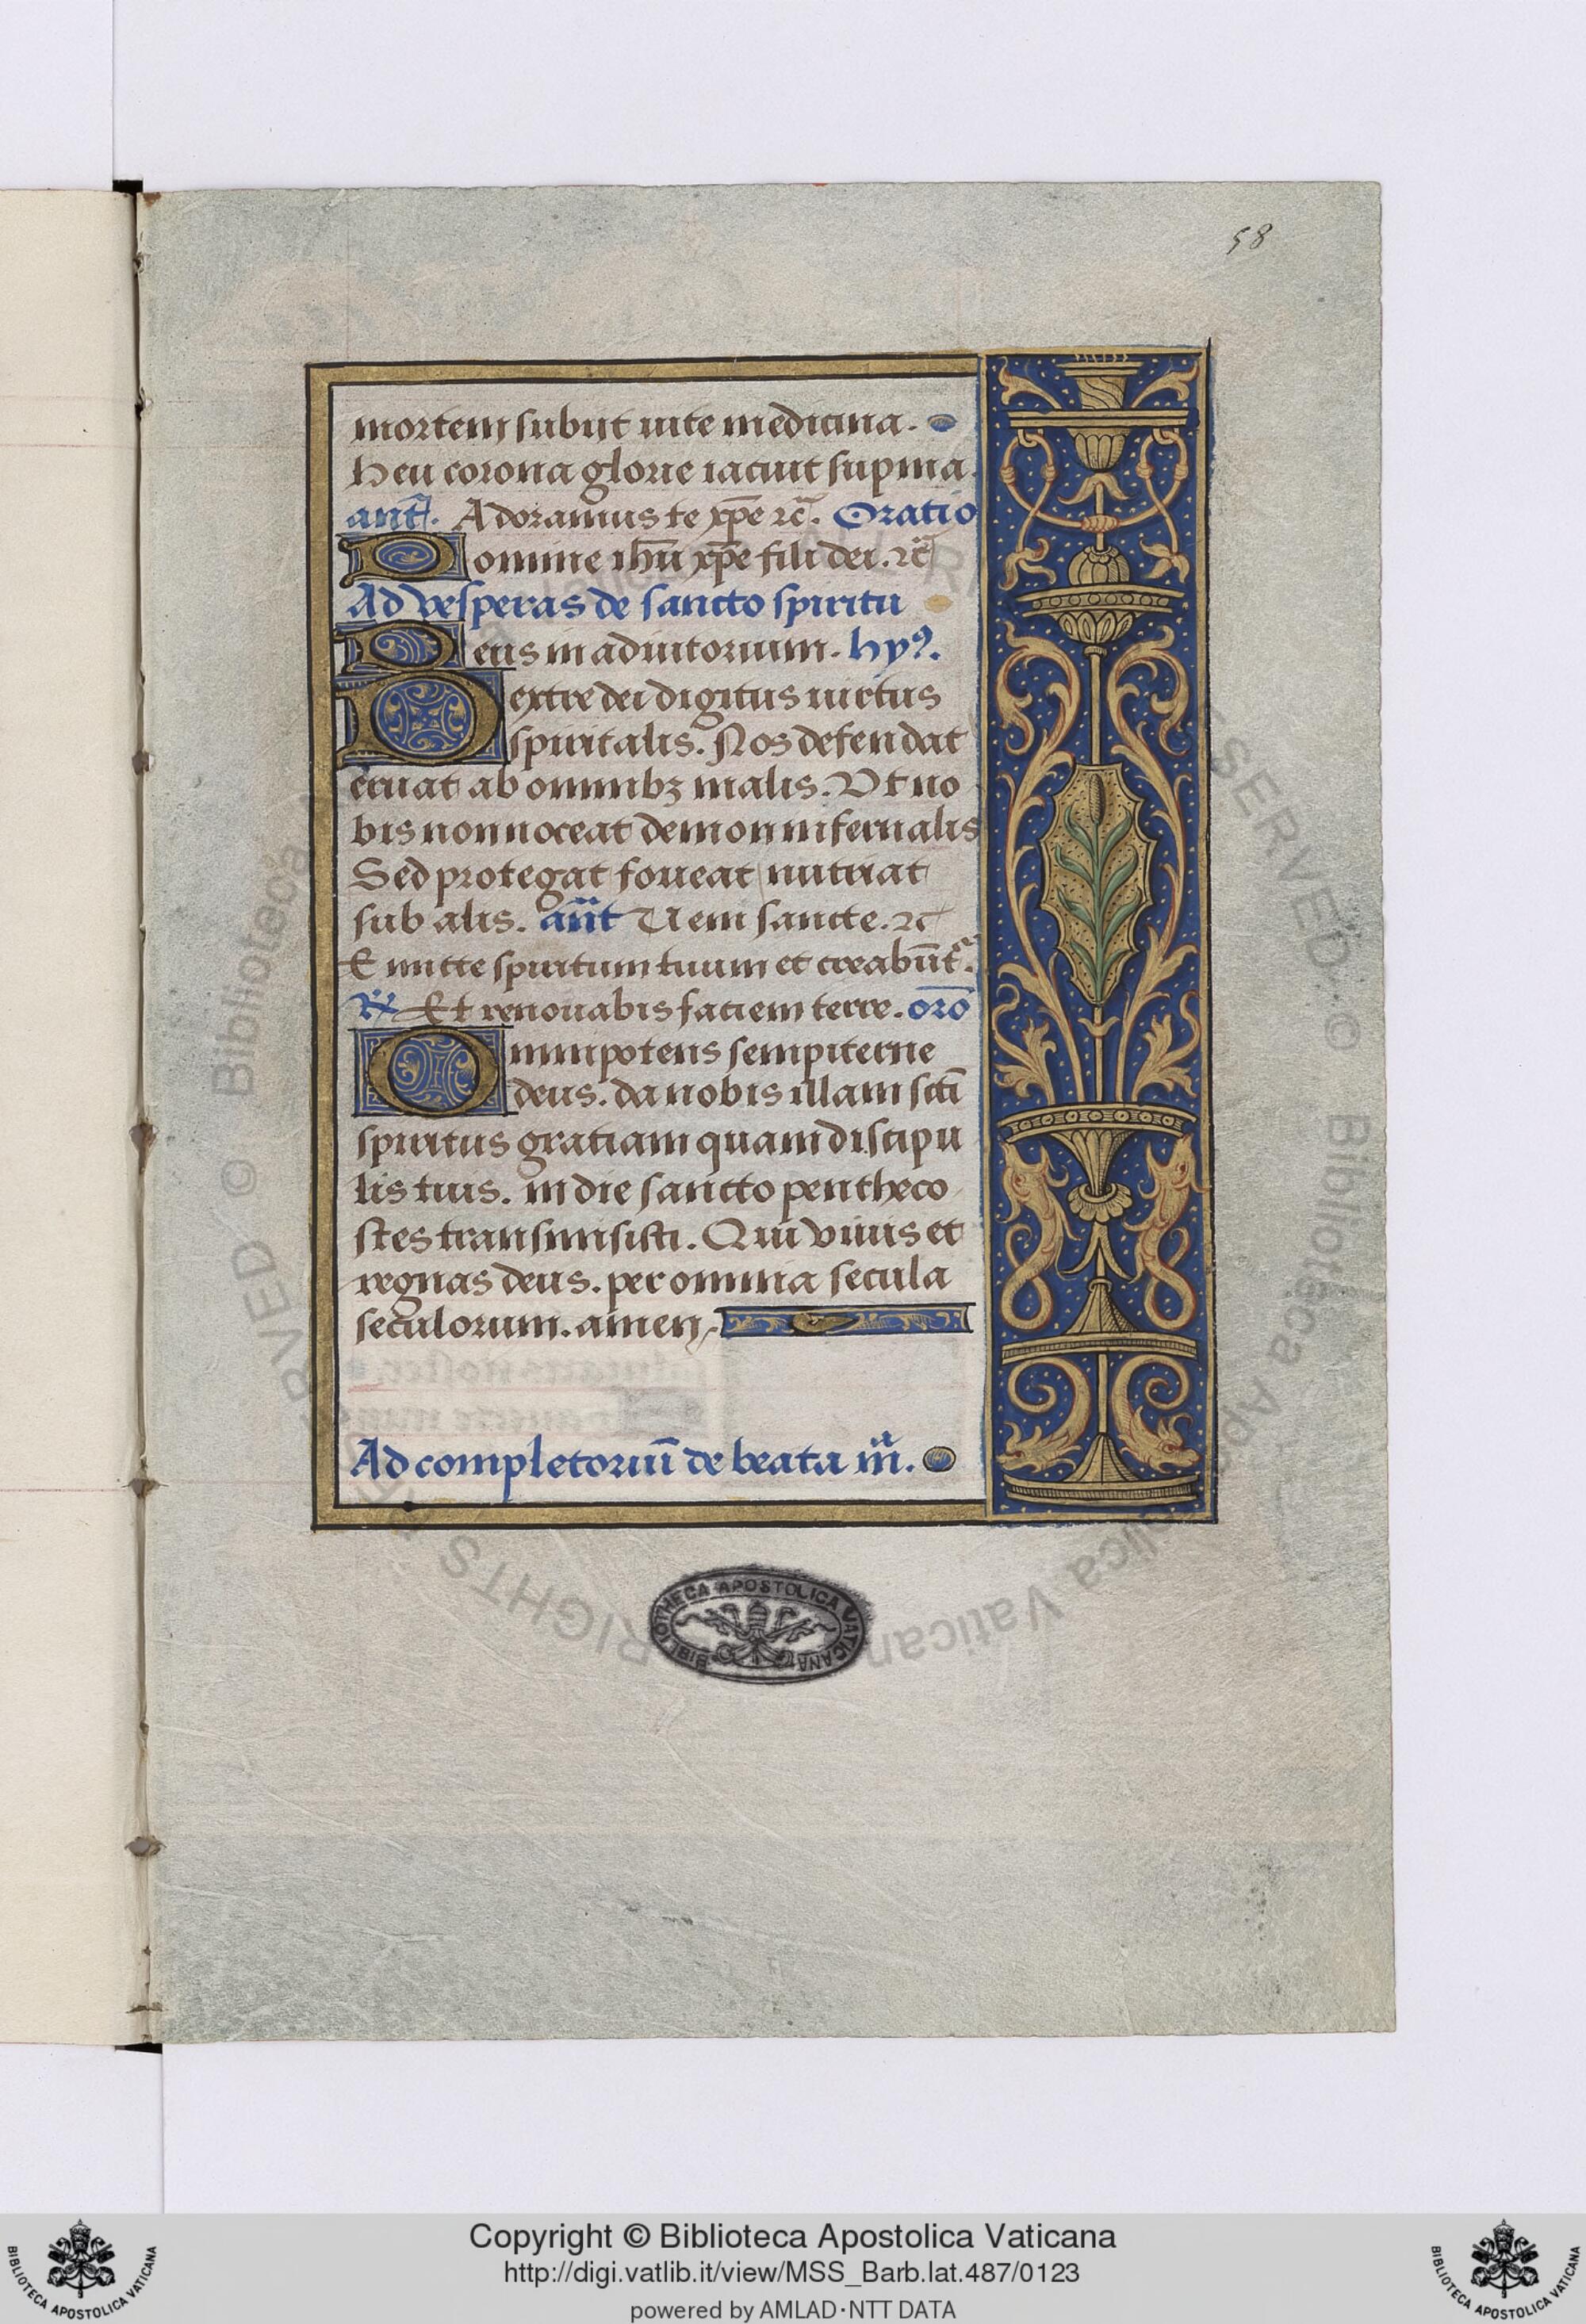 58
mortem subijt uite medicina.
Heu corona glorie iacuit supina.
anť. Adoramus te xp̄e ⁊c̄. Oratio
Domine ih̄u xp̄e fili dei. ⁊c̄
Ad vesperas de sancto spiritu
Deus in adiutorium. hyꝰ.
Dextre dei digitus uirtus
spiritalis. Nos defendat
eruat ab omnibꝫ malis. Vt no
bis non noceat demon infernalis
Sed protegat foueat nutriat
sub alis. an̄t Ueni sancte. ⁊c
Emitte spiritum tuum et creabūt᷑.
℟ Et renouabis faciem terre. orō
Omnipotens sempiterne
deus. da nobis illam sctī
spiritus gratiam quam discipu
lis tuis. in die sancto pentheco
stes transmisisti. Qui viuis et
regnas deus. per omnia secula
seculorum. amen
Ad completoriū de beata mͣ.
BIBLIOTHECA APOSTOLICA VATICANA
Copyright © Biblioteca Apostolica Vaticana
http://digi.vatlib.it/view/MSS_Barb.lat.487/0123
powered by AMLAD·NTT DATA
BIBLIOTECA APOSTOLICA VATICANA
BIBLIOTECA APOSTOLICA VATICANA